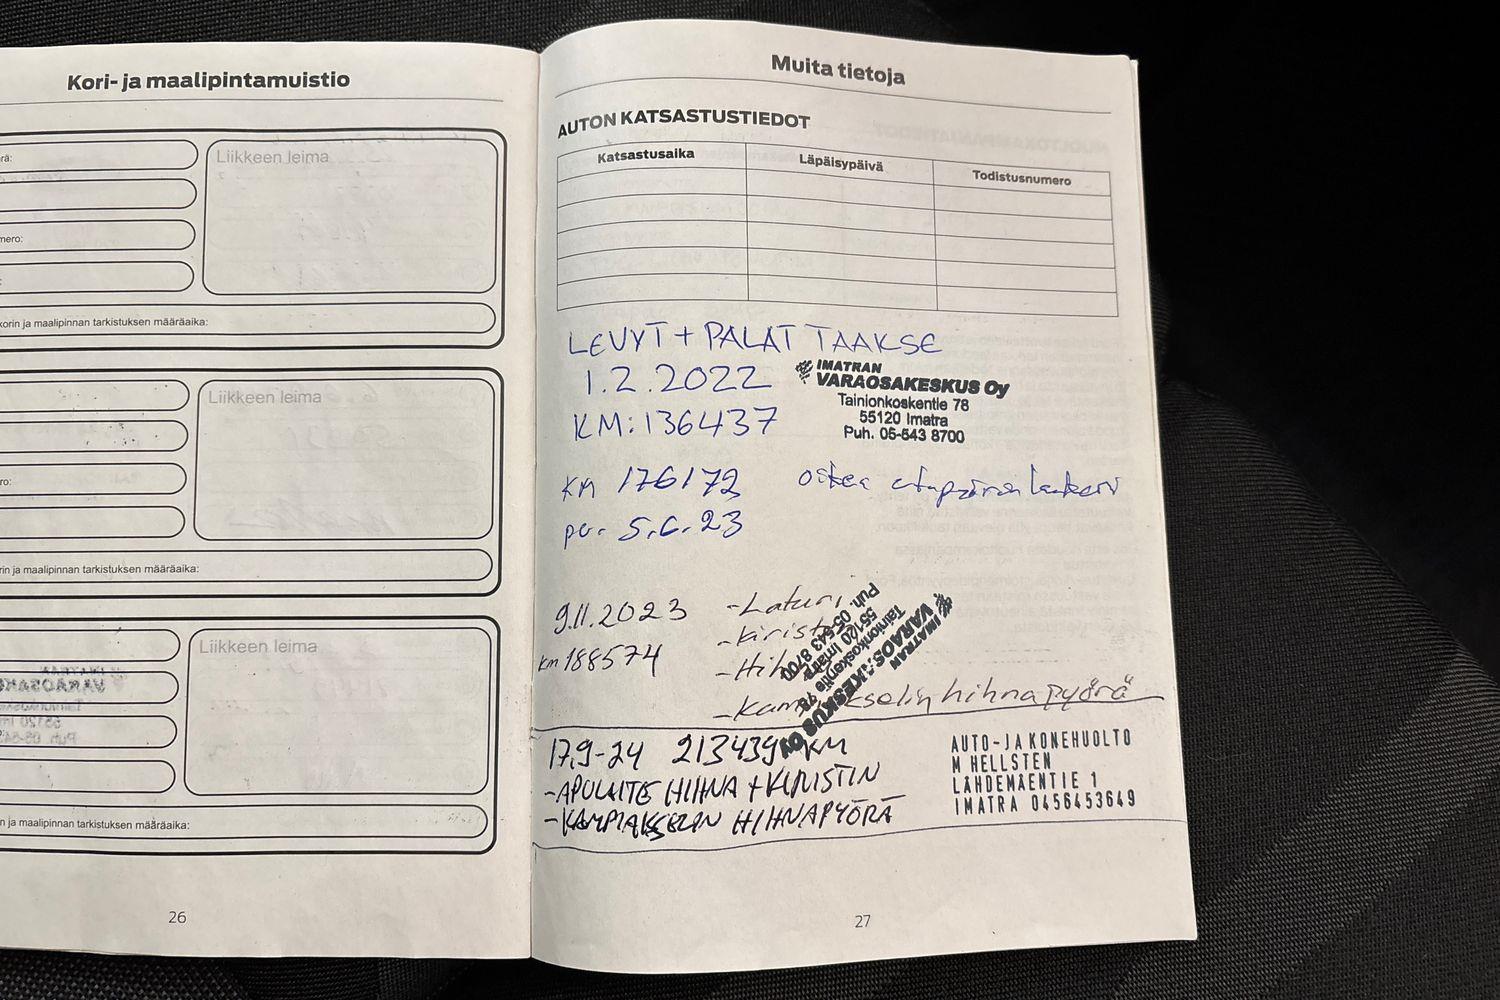 Kori- ja maalipintamuistio
rä:
Liikkeen leima
mero:
korin ja maalipinnan tarkistuksen määräaika:
Liikkeen leima
ro:
rin ja maalipinnan tarkistuksen määräaika:
Liikkeen leima
n ja maalipinnan tarkistuksen määräaika:
26
Muita tietoja
AUTON KATSASTUSTIEDOT
Katsastusaika Läpäisypäivä Todistusnumero
LEVYT + PALAT TAAKSE
1.2.2022
KM: 136437
IMATRAN
VARAOSAKESKUS Oy
Tainionkoskentie 78
55120 Imatra
Puh. 05-543 8700
KM 176172 oikea etupyörän laakeri
pv. 5.6.23
9.11.2023 - Laturi
km 188574 - kiristin
- Hih
- kam kselin hihnapyörä
IMATRAN
VARAOSAKESKUS Oy
Tainionkoskentie 78
55120 Imatra
Puh. 05-543 8700
17.9-24 213439 KM
- APULAITE HIHNA + KIRISTIN
- KAMPIAKSELIN HIHNAPYÖRÄ
AUTO- JA KONEHUOLTO
M HELLSTEN
LÄHDEMÄENTIE 1
IMATRA 0456453649
27